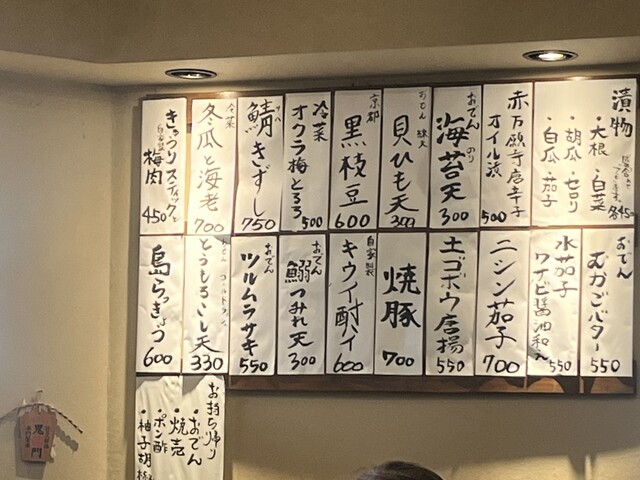 漬物
・大根 ・白菜
・胡瓜 ・セロリ
・白瓜 ・茄子
各450
赤万願寺唐辛子
オイル漬
500
おでん のり
海苔天
300
おでん 練天
貝ひも天
300
京都
黒枝豆
600
冷菜
オクラ梅とろろ
500
鯖きずし
750
冷菜
冬瓜と海老
700
きゅうりスティック
自家製
梅肉
450
おでん
むかごバター
550
水茄子
ワサビ醤油和え
550
ニシン茄子
700
土ゴボウ唐揚
550
焼豚
700
自家製
キウイ酎ハイ
600
おでん
鰯つみれ天
300
おでん
ツルムラサキ
550
とうもろこし天
330
島らっきょう
600
お持ち帰り
・おでん
・焼売
・ポン酢
・柚子胡椒
鬼門